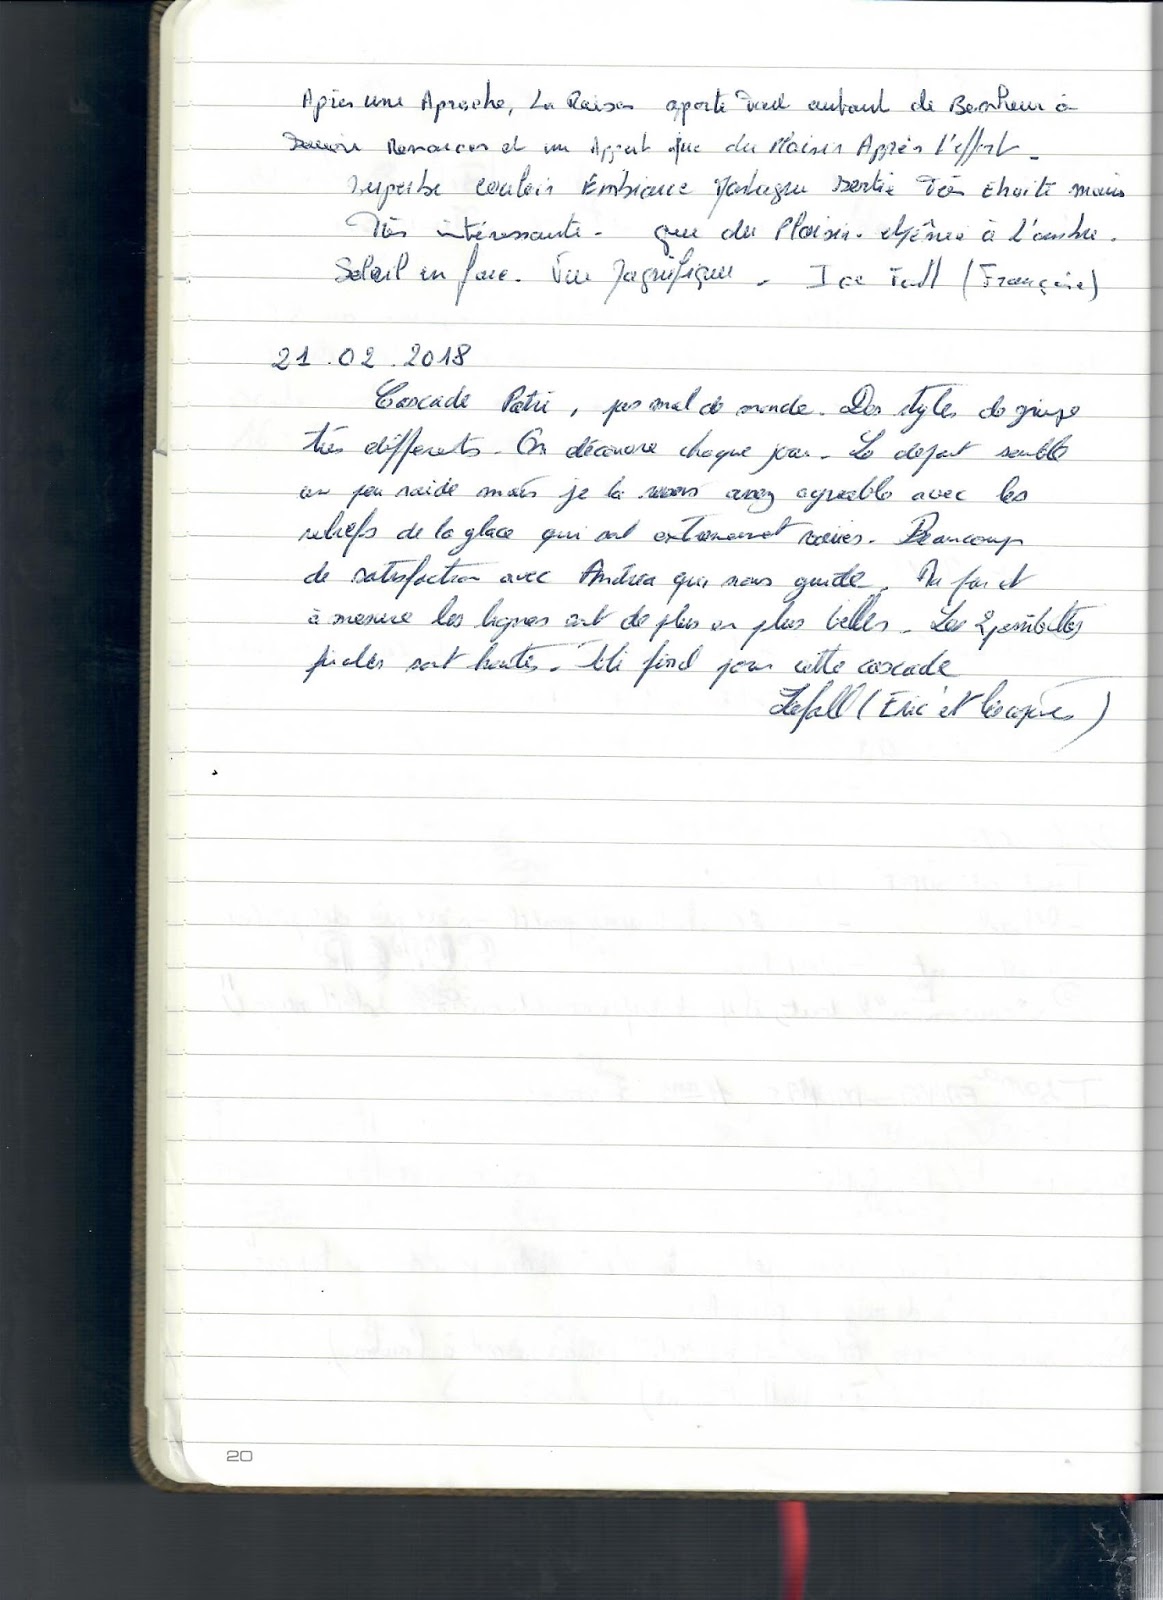 Après une Aproche, La Raison aporte tout autant de Bonheur à
Ressources et un Appart que du Plaisir Apprès l'effort -
Superbe couloir Embiance Sortie Très étroite mais
Très intéressante - que du Plaisir. à l'ombre.
Soleil en face. Vue Magnifique - Ice Fall (Françoise)
21.02.2018
Cascade Patri, pas mal de monde. Des styles de givre
très différents. On découvre chaque jour. Le depart semble
un peu raide mais je la assez agreable avec les
reliefs de la glace qui sont extremement variés. Beaucoup
de satisfaction avec Andrea qui nous guide. Au fur et
à mesure les lignes sont de plus en plus belles. Les 2 possibilités
finales sont hautes. final pour cette cascade
Icefall (Eric et )
20